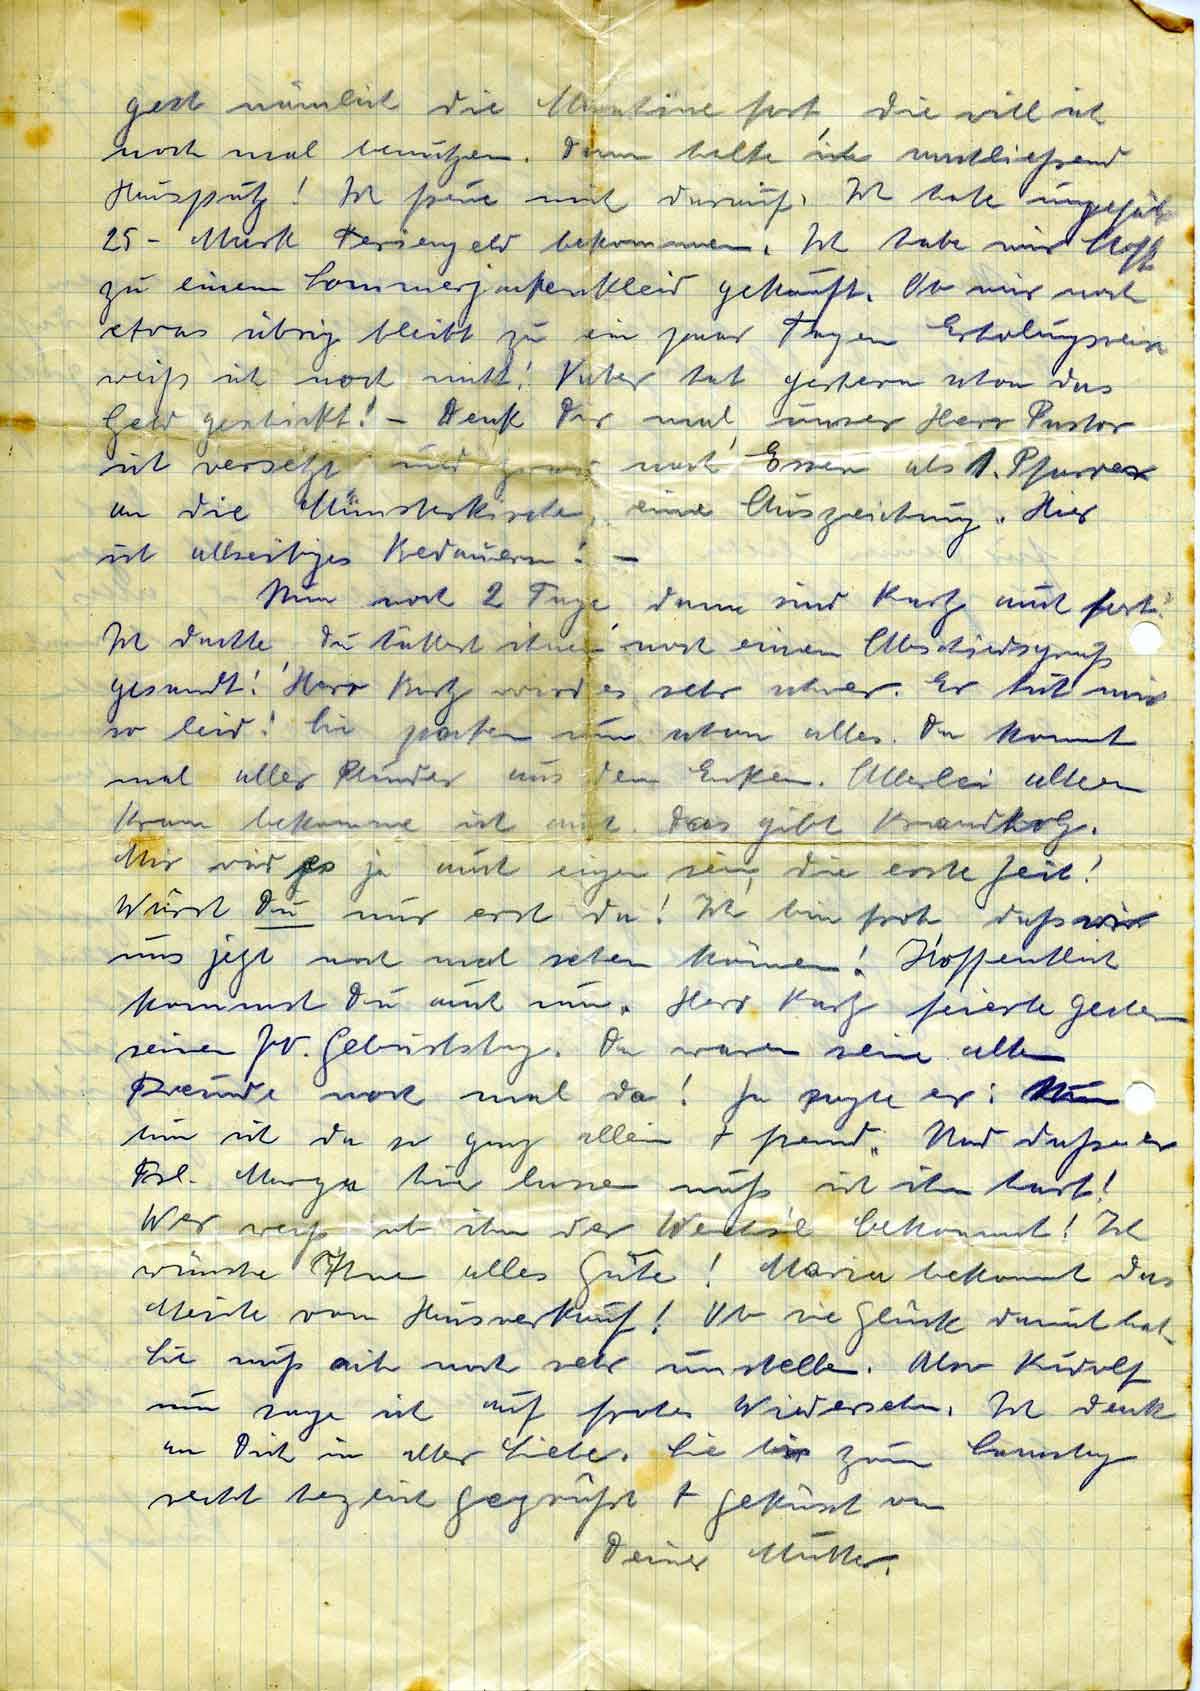 geht nämlich die Maschine fort, die will ich
noch mal benutzen. Dann halte ich anschließend
Hausputz! Ich freue mich darauf. Ich habe ungefähr
25 - Mark Feriengeld bekommen. Ich habe mir Stoff
zu einem Sommerjackenkleid gekauft. Ob mir noch
etwas übrig bleibt zu ein paar Tagen Erholungsreise
weiß ich noch nicht! Vater hat gestern schon das
Geld geschickt! - Denk Dir mal, unser Herr Pastor
ist versetzt und zwar nach Essen als 1. Pfarrer
an die Münsterkirche, eine Auszeichnung. Hier
ist allseitiges Bedauern! -
Nun noch 2 Tage dann sind Kurtz auch fort!
Ich dachte Du hättest ihnen noch einen Abschiedsgruß
gesandt! Herr Kurtz wird es sehr schwer. Er tut mir
so leid! Sie packen nun schon alles. Da kommt
mal aller Plunder aus den Ecken. Allerlei alten
Kram bekomme ich auch. Das gibt Brandholz.
Mir wird es ja auch eigen sein, die erste Zeit!
Wärst Du nur erst da! Ich bin froh, daß wir
uns jetzt noch mal sehen können! Hoffentlich
kommst Du auch nun. Herr Kurtz feierte gestern
seinen 70. Geburtstag. Da waren seine alten
Freunde noch mal da! Ja sagte er: Nun
bin ich da so ganz allein + fremd. Und dass er
Frl. Marga hier lassen muß ist ihm hart!
Wer weiß ob ihm der Wechsel bekommt! Ich
wünsche Ihnen alles Gute! Maria bekommt das
Meiste vom Hausverkauf! Ob sie Glück damit hat.
Sie muß sich noch sehr umstellen. Also Rudolf
nun sage ich auf frohes Wiedersehn. Ich denk
an Dich in aller Liebe. Sie bis zum Samstag
recht herzlich gegrüßt + geküsst von
Deiner Mutter.